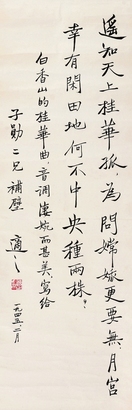 遥知天上桂華孤，為問嫦娥更要無，月宮
幸有閑田地，何不中央種兩株？
白香山的桂華曲，音調淒婉而甚美，寫給
子勛二兄補壁
適之
一九四五，二月